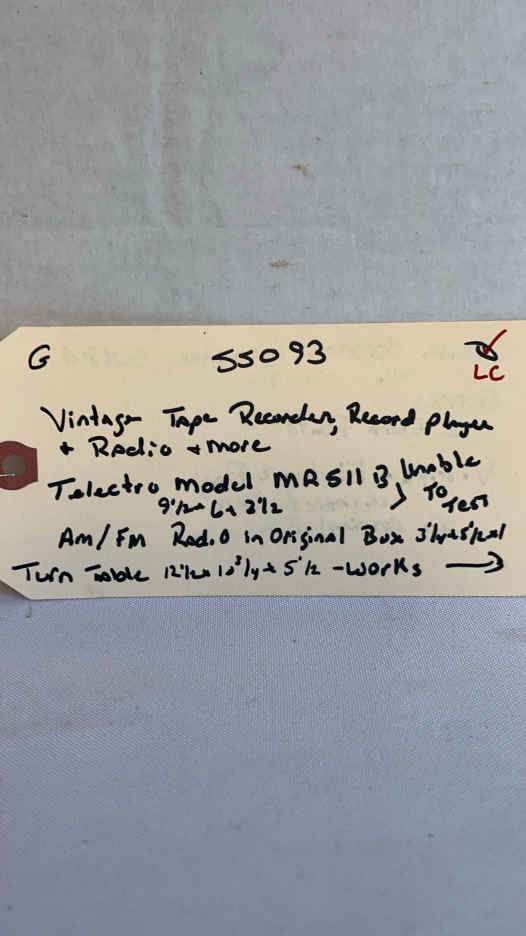 G 55093
LC
Vintage Tape Recorder, Record player
+ Radio + more
Telectro Model MR511B Unable To Test
9 1/2 x 6 x 2 1/2
Am/FM Radio in Original Box
Turn Table 12 1/2 x 10 3/4 x 5 1/2 - works →